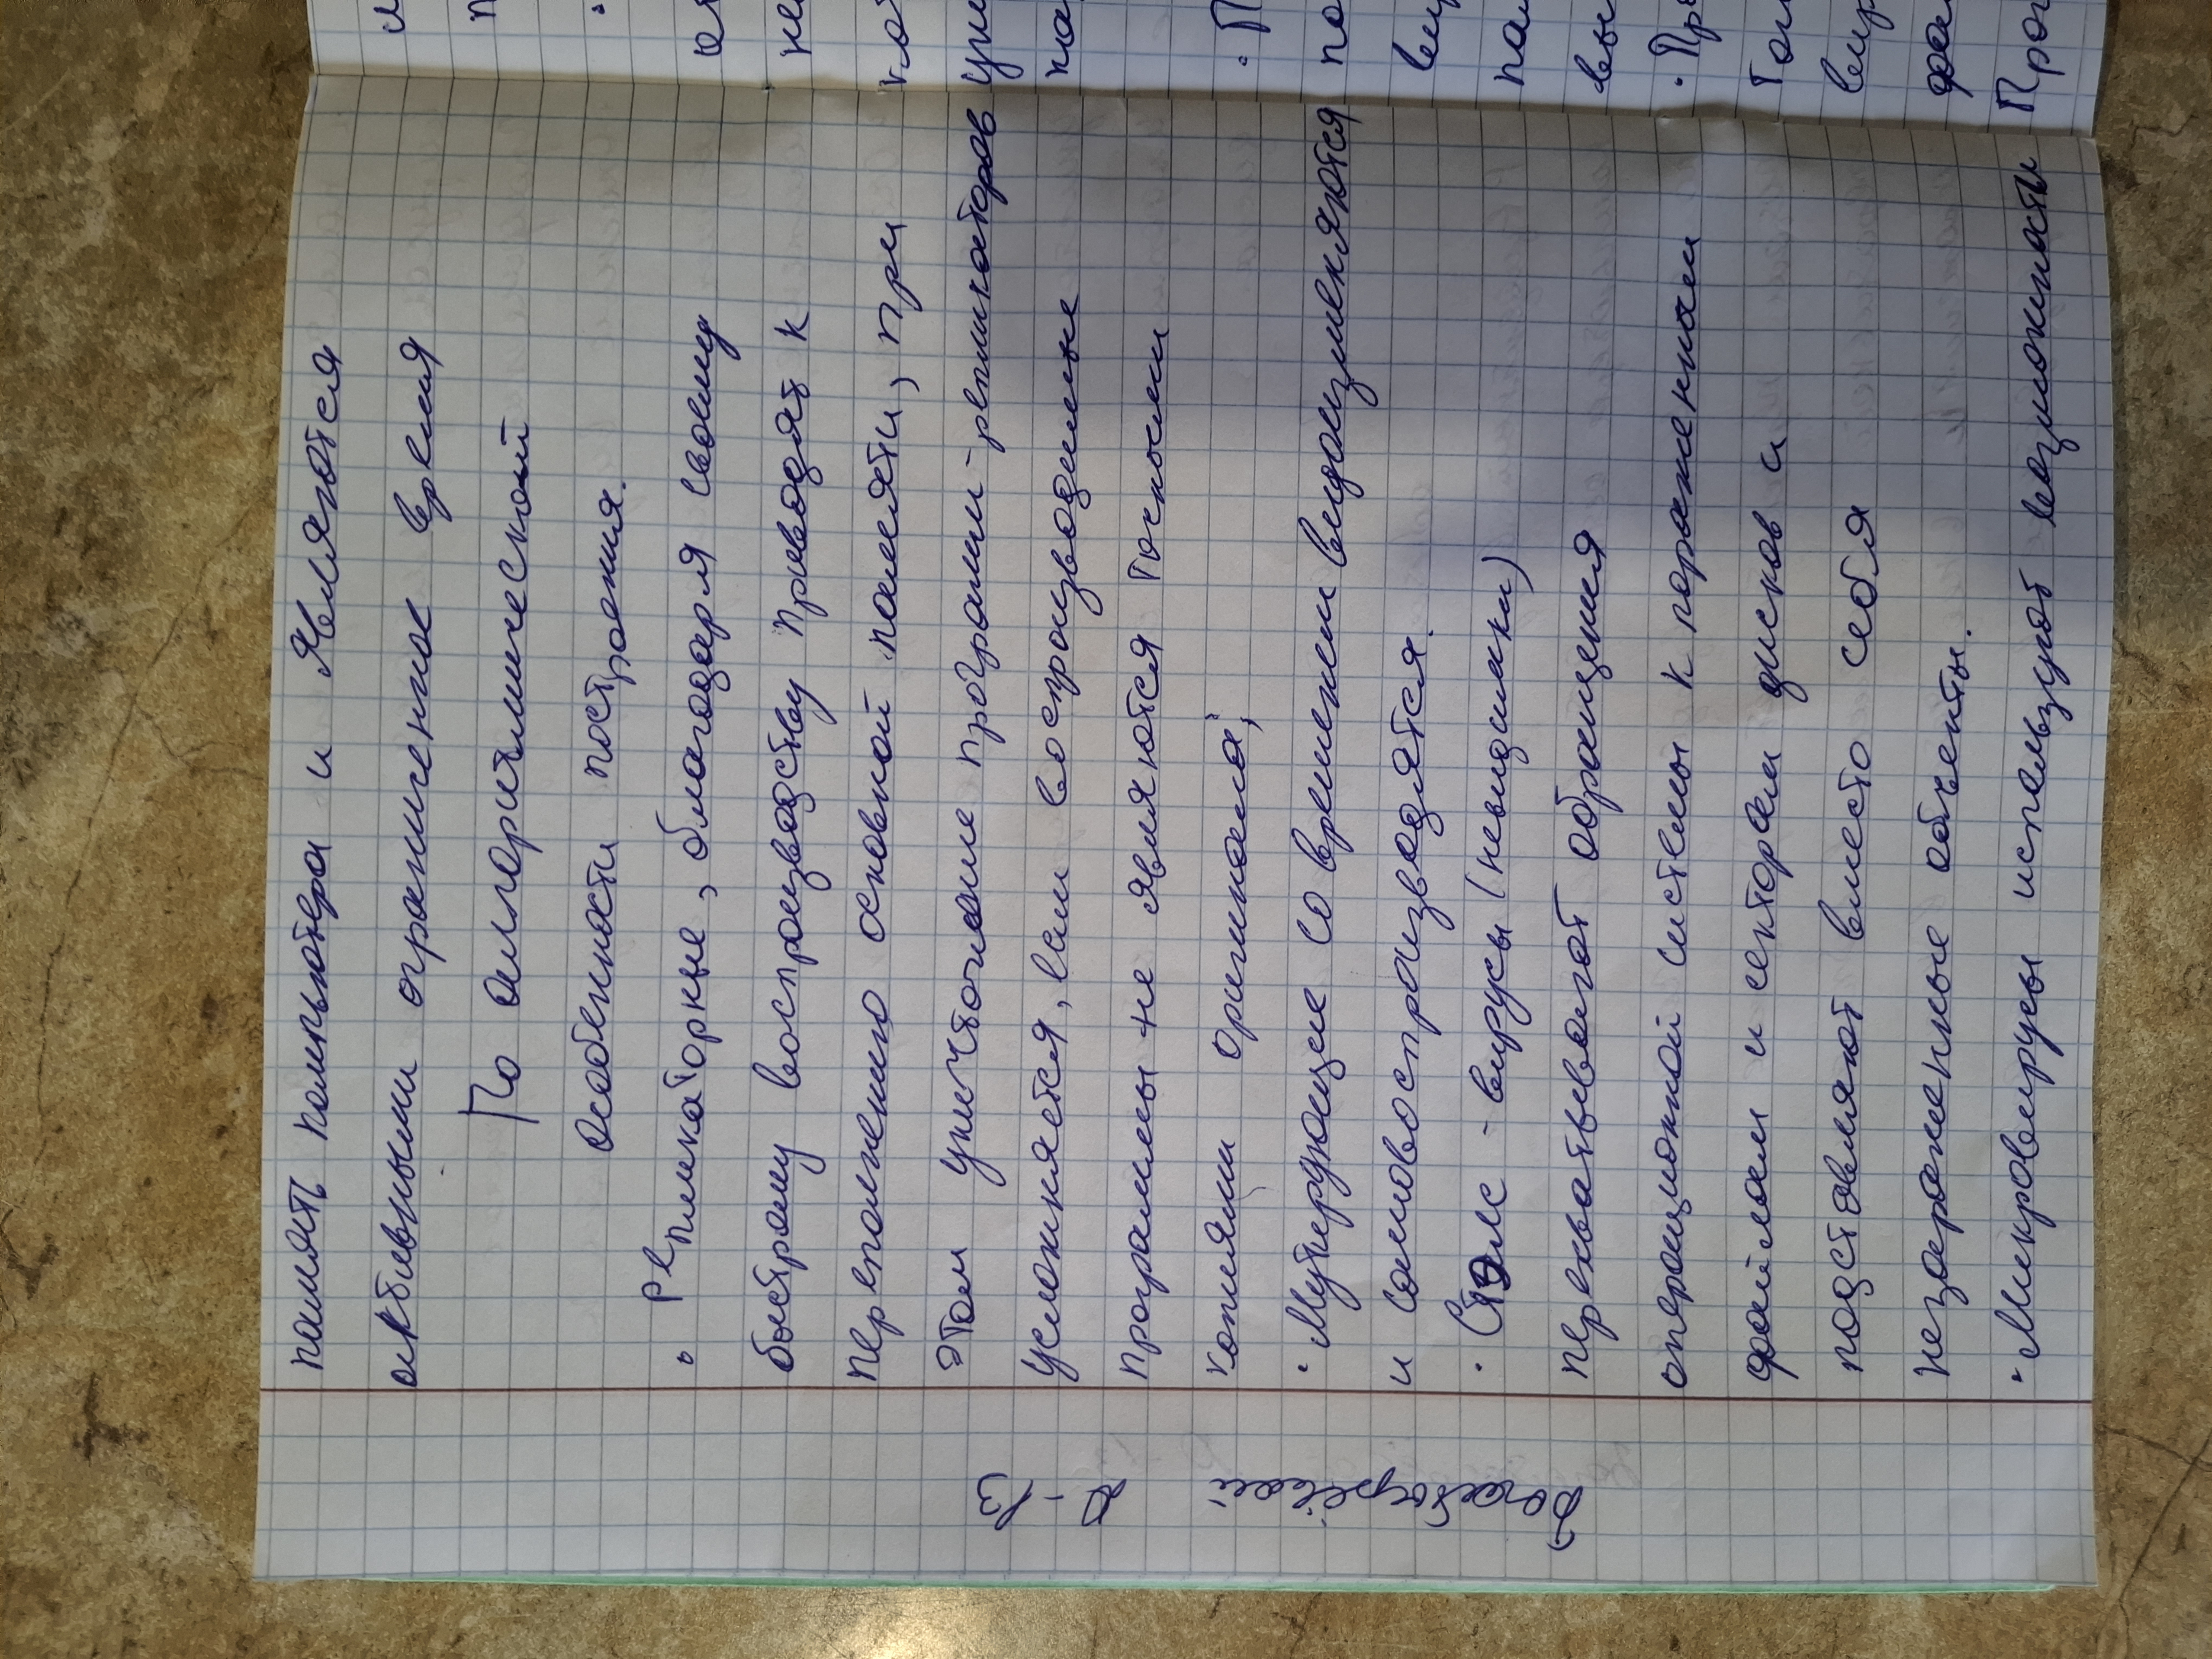 память компьютера и являются
активными ограниченное время
По алгоритмической
особенности построения.
• Репликаторные, благодаря своему
быстрому воспроизводству приводят к
переполнению основной памяти, при
этом уничтожение программ-репликаторов
усложняется, если воспроизводимые
программы не являются точными
копиями оригинала;
• Мутирующие со временем видоизменяются
и самовоспроизводятся.
• Стэлс-вирусы (невидимки)
перехватывают обращения
операционной системы к пораженным
файлам и секторам дисков и
подставляют вместо себя
незараженные объекты.
• Микровирусы используют возможности